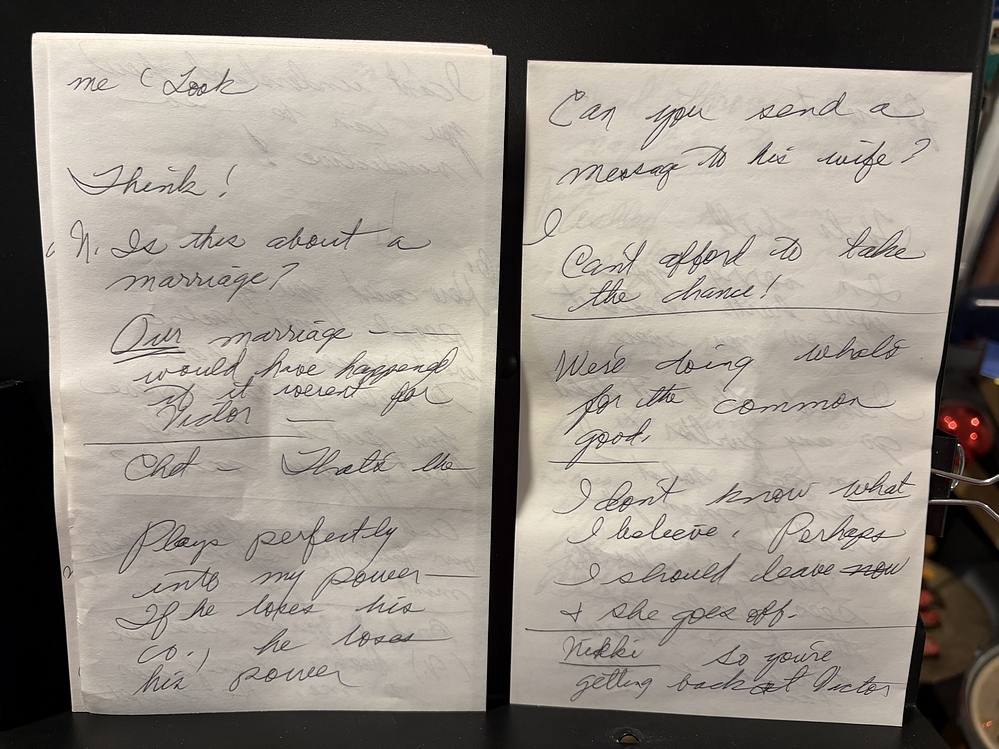 me ( Look
Think!
N. Is this about a
marriage?
Our marriage —
would have happend
if it werent for
Victor —
Chet — That's the
Plays perfectly
into my power —
If he loses his
co., he loses
his power
Can you send a
message to his wife?
I
Can't afford to take
the chance!
We're doing whats
for the common
good.
I don't know what
I beleeve. Perhaps
I should leave now
+ she goes off.
Nikki so you're
getting back at Victor